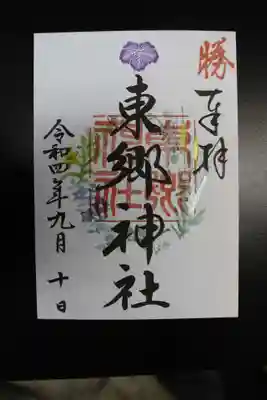 勝
奉拝
東郷神社
令和四年九月十日